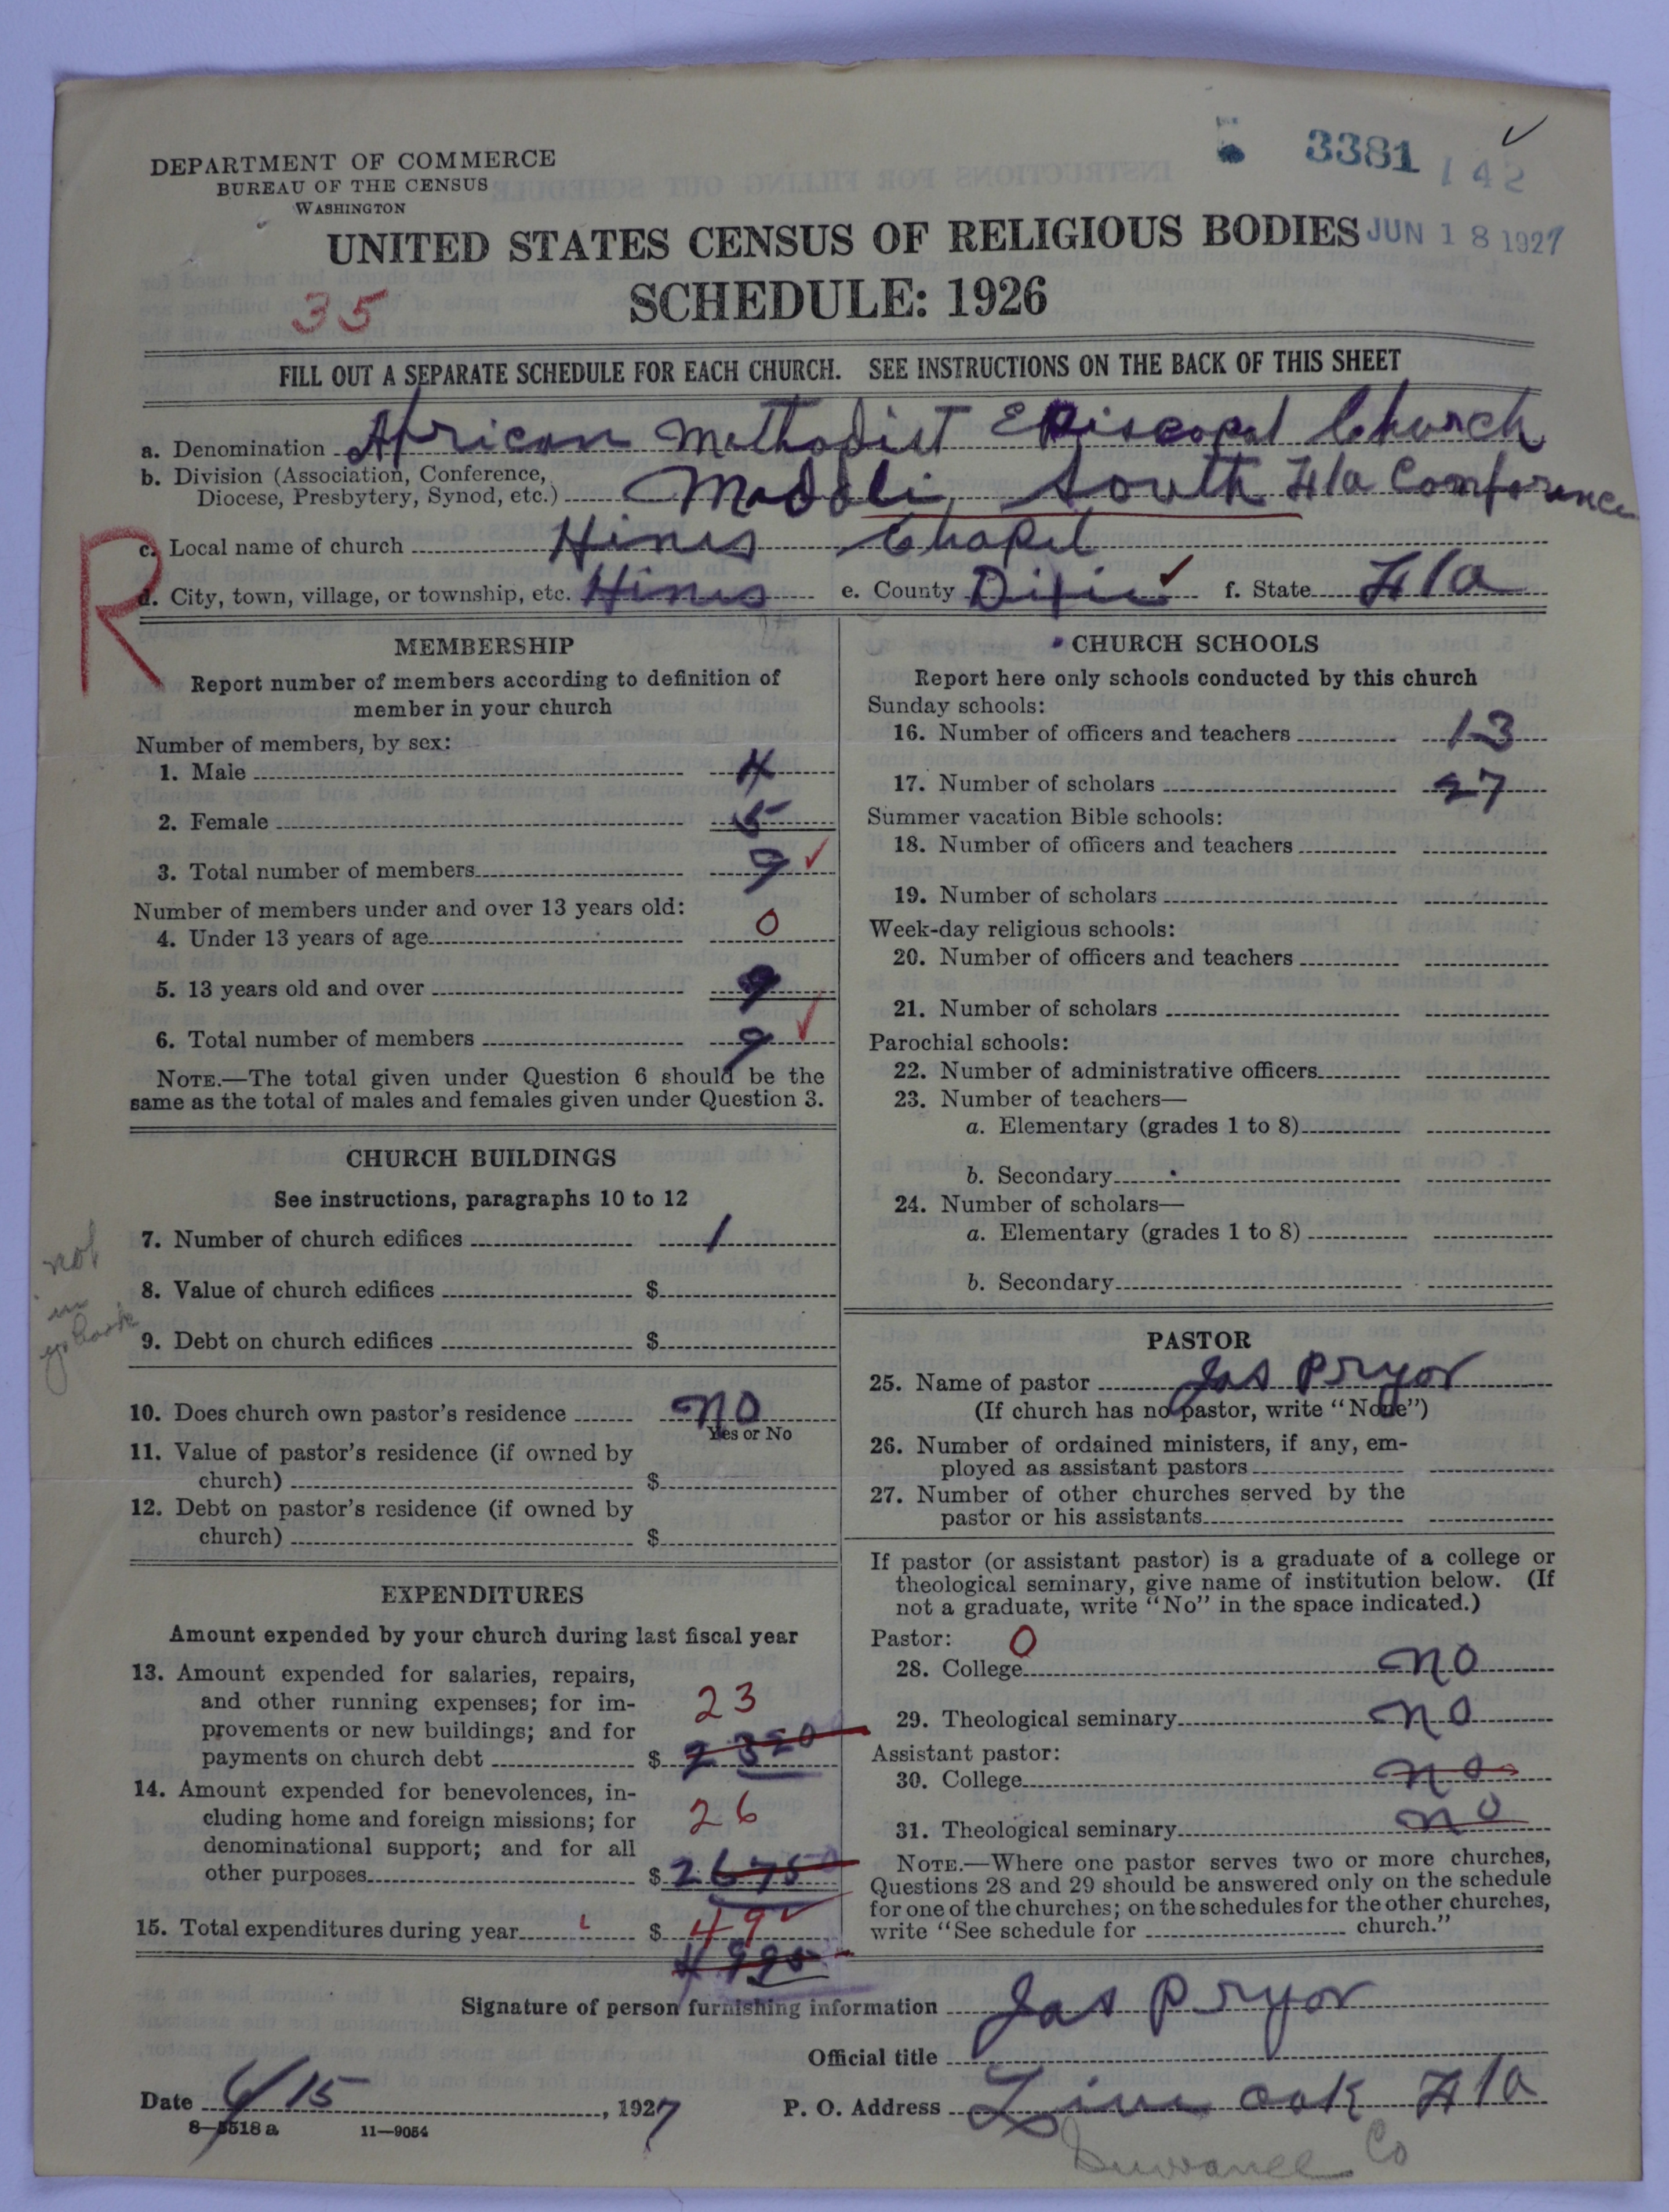 DEPARTMENT OF COMMERCE
BUREAU OF THE CENSUS
WASHINGTON
3381 142
UNITED STATES CENSUS OF RELIGIOUS BODIES JUN 18 1927
35 SCHEDULE: 1926
FILL OUT A SEPARATE SCHEDULE FOR EACH CHURCH. SEE INSTRUCTIONS ON THE BACK OF THIS SHEET
a. Denomination African Methodist Episcopal Church
b. Division (Association, Conference,
Diocese, Presbytery, Synod, etc.) South Fla Conference
R
c. Local name of church Hines Chapel
d. City, town, village, or township, etc. Hines e. County Dixie f. State Fla
MEMBERSHIP
Report number of members according to definition of
member in your church
Number of members, by sex:
1. Male 4
2. Female 5
3. Total number of members 9
Number of members under and over 13 years old:
4. Under 13 years of age 0
5. 13 years old and over 9
6. Total number of members 9
NOTE.—The total given under Question 6 should be the
same as the total of males and females given under Question 3.
CHURCH BUILDINGS
See instructions, paragraphs 10 to 12
7. Number of church edifices 1
8. Value of church edifices $
9. Debt on church edifices $
not
in
yr book
10. Does church own pastor's residence no
Yes or No
11. Value of pastor's residence (if owned by
church) $
12. Debt on pastor's residence (if owned by
church) $
EXPENDITURES
Amount expended by your church during last fiscal year
13. Amount expended for salaries, repairs,
and other running expenses; for im-
provements or new buildings; and for
payments on church debt $ 23
2320
14. Amount expended for benevolences, in-
cluding home and foreign missions; for
denominational support; and for all
other purposes $ 26
2675
15. Total expenditures during year $ 49
4995
CHURCH SCHOOLS
Report here only schools conducted by this church
Sunday schools:
16. Number of officers and teachers 13
17. Number of scholars 27
Summer vacation Bible schools:
18. Number of officers and teachers
19. Number of scholars
Week-day religious schools:
20. Number of officers and teachers
21. Number of scholars
Parochial schools:
22. Number of administrative officers
23. Number of teachers—
a. Elementary (grades 1 to 8)
b. Secondary
24. Number of scholars—
a. Elementary (grades 1 to 8)
b. Secondary
PASTOR
25. Name of pastor Jas Pryor
(If church has no pastor, write "None")
26. Number of ordained ministers, if any, em-
ployed as assistant pastors
27. Number of other churches served by the
pastor or his assistants
If pastor (or assistant pastor) is a graduate of a college or
theological seminary, give name of institution below. (If
not a graduate, write "No" in the space indicated.)
Pastor: 0
28. College no
29. Theological seminary no
Assistant pastor:
30. College no
31. Theological seminary no
NOTE.—Where one pastor serves two or more churches,
Questions 28 and 29 should be answered only on the schedule
for one of the churches; on the schedules for the other churches,
write "See schedule for church."
Signature of person furnishing information Jas Pryor
Official title
Date 6/15, 1927 P. O. Address Live oak Fla
8—5518 a 11—9054
Suwanee Co